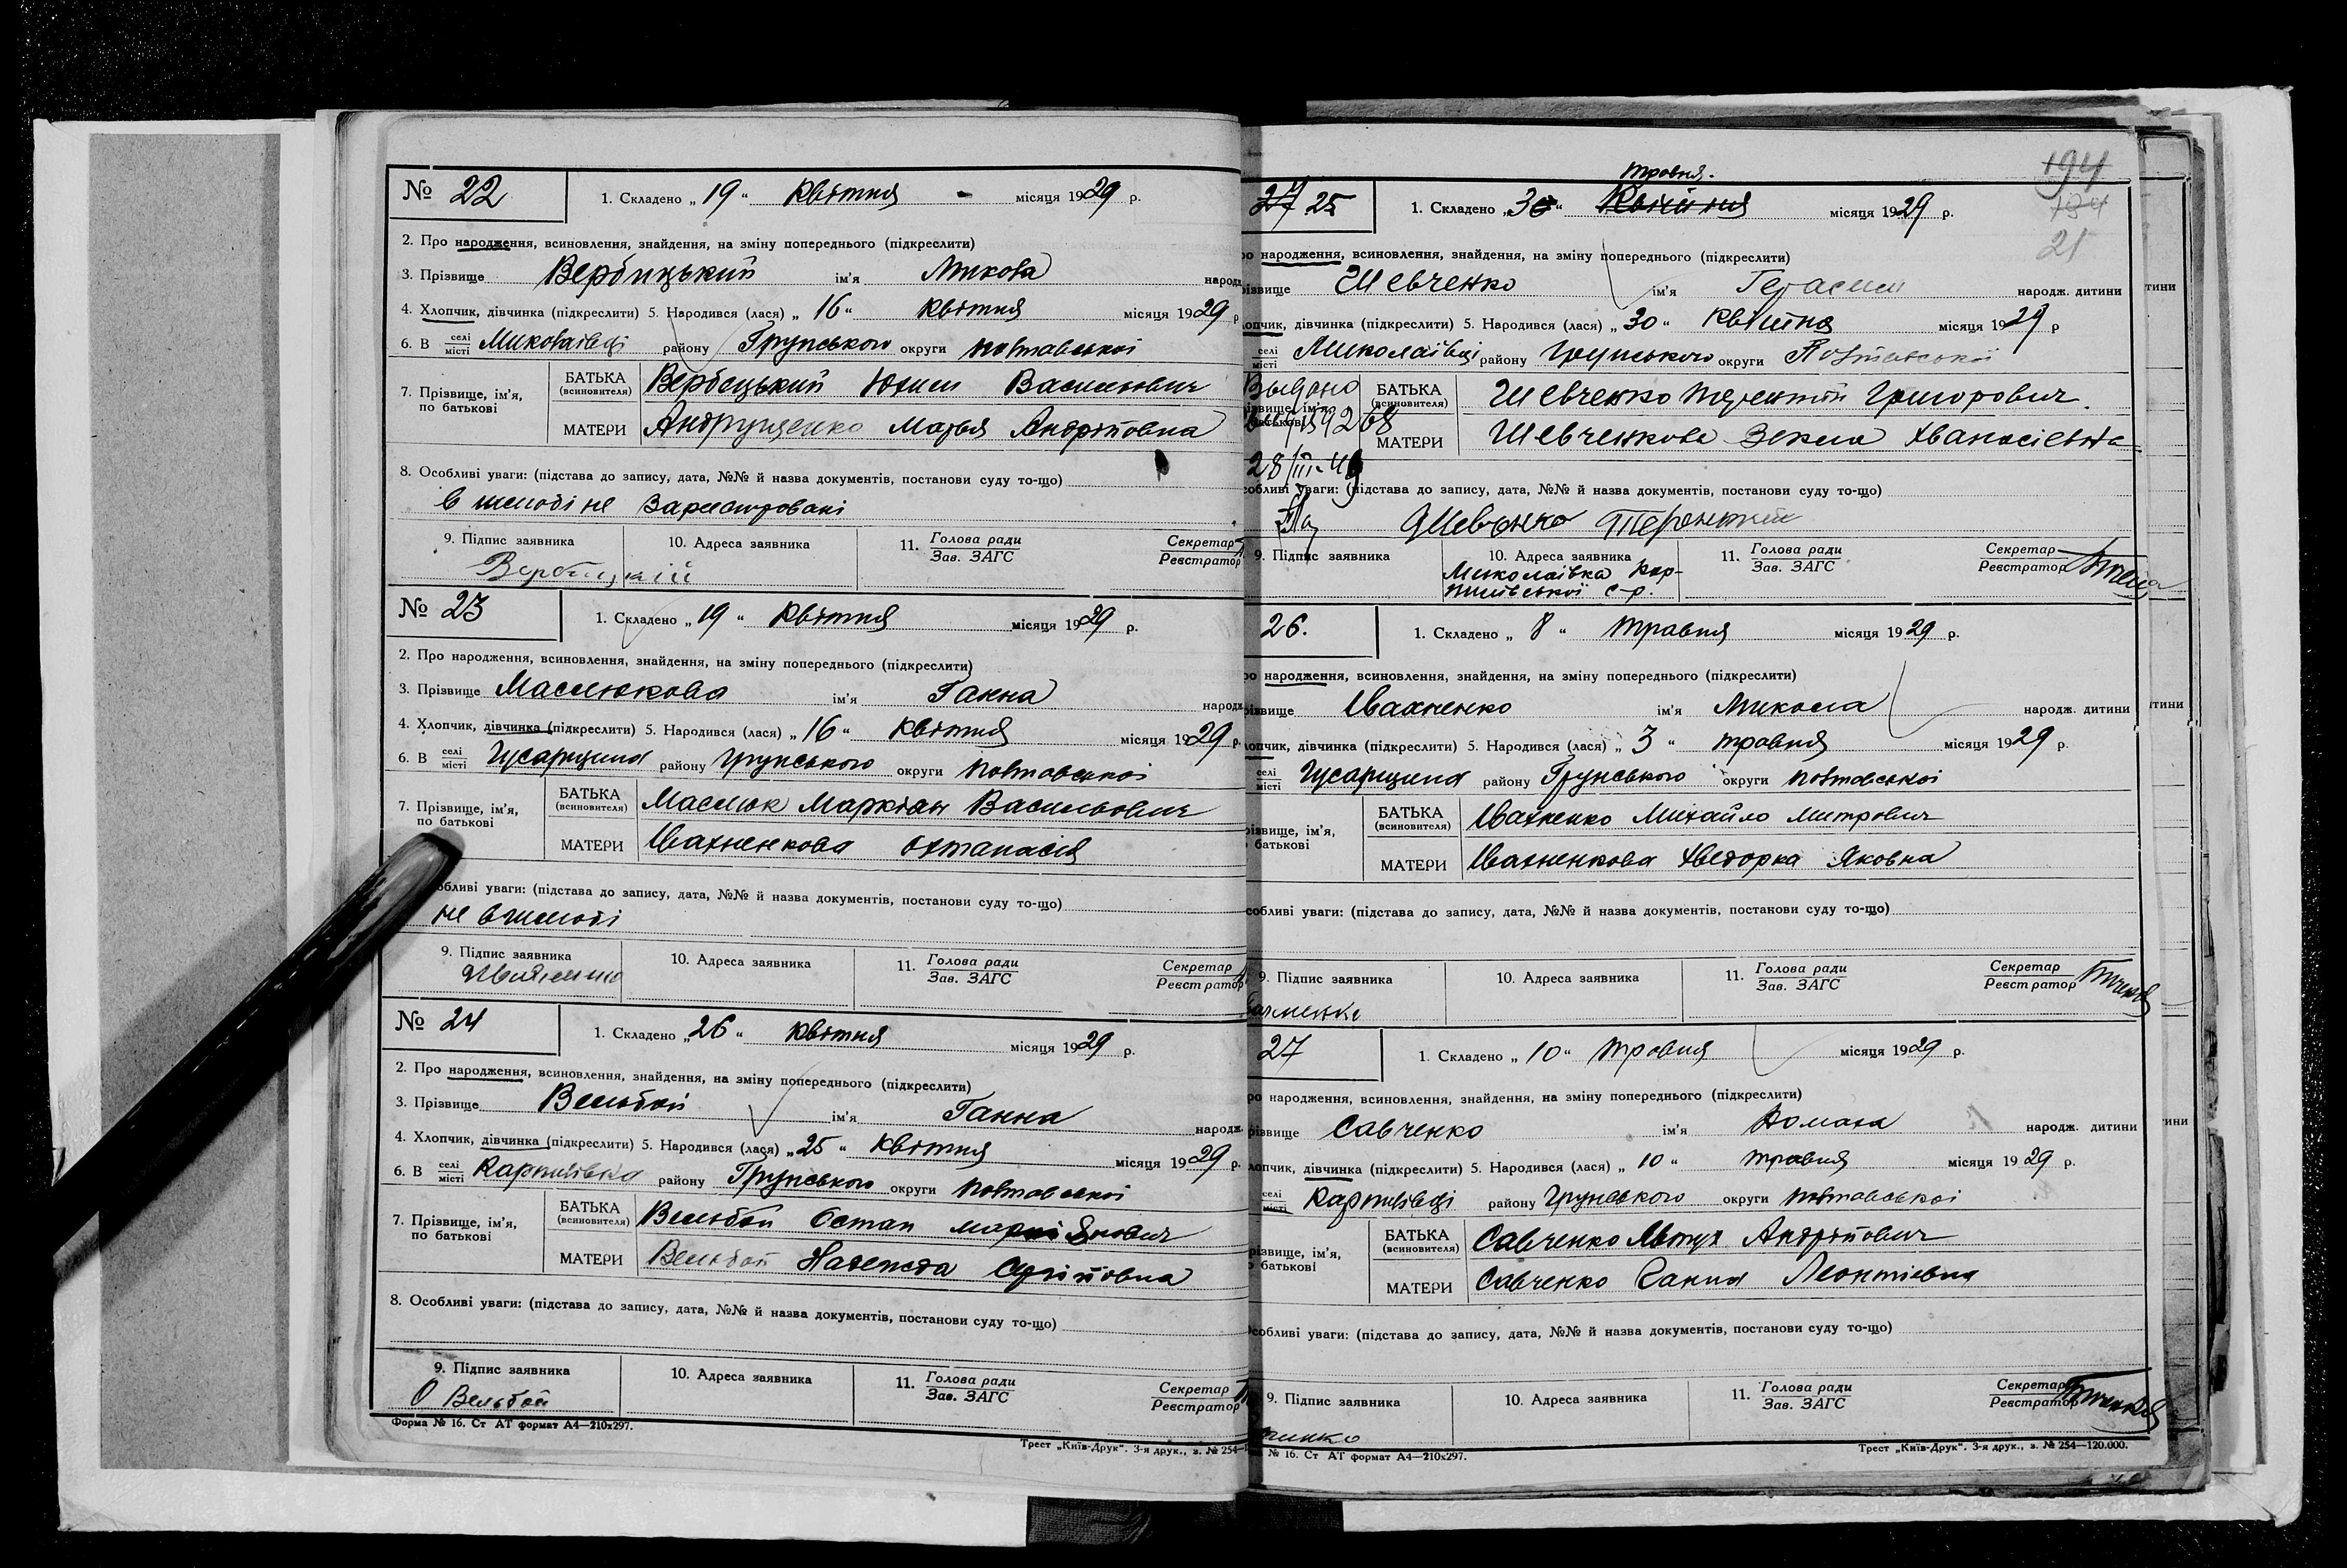 № 22
1. Складено „ 19 “ Квітня місяця 1929 р.
2. Про народження, всиновлення, знайдення, на зміну попереднього (підкреслити)
3. Прізвище Вербицький ім'я Микола народж
4. Хлопчик, дівчинка (підкреслити) 5. Народився (лася) „ 16 “ Квітня місяця 1929 р
6. В селі місті Миколаївці району Грунського округи полтавської
7. Прізвище, ім'я, по батькові
БАТЬКА (всиновителя) Вербицький Юхим Васильович
МАТЕРИ Андрущенко Марья Андріївна
8. Особливі уваги: (підстава до запису, дата, №№ й назва документів, постанови суду то-що)
в шлюбі не зареєстровані
9. Підпис заявника 10. Адреса заявника 11. Голова ради Зав. ЗАГС Секретар Реєстратор
Вербицкій
№ 23
1. Складено „ 19 “ Квітня місяця 1929 р.
2. Про народження, всиновлення, знайдення, на зміну попереднього (підкреслити)
3. Прізвище Маслюкова ім'я Ганна народж
4. Хлопчик, дівчинка (підкреслити) 5. Народився (лася) „ 16 “ Квітня місяця 1929 р.
6. В селі місті Гусарщина району Грунського округи полтавської
7. Прізвище, ім'я, по батькові
БАТЬКА (всиновителя) Маслюк Маркіян Васильович
МАТЕРИ Івахненкова Охтанасія
обливі уваги: (підстава до запису, дата, №№ й назва документів, постанови суду то-що)
не в шлюбі
9. Підпис заявника 10. Адреса заявника 11. Голова ради Зав. ЗАГС Секретар Реєстратор
№ 24
1. Складено „ 26 “ Квітня місяця 1929 р.
2. Про народження, всиновлення, знайдення, на зміну попереднього (підкреслити)
3. Прізвище Вельбой ім'я Ганна народж.
4. Хлопчик, дівчинка (підкреслити) 5. Народився (лася) „ 25 “ Квітня місяця 1929 р.
6. В селі місті Карпилівка району Грунського округи полтавської
7. Прізвище, ім'я, по батькові
БАТЬКА (всиновителя) Вельбой Остап
МАТЕРИ Вельбой Надежда Сергіївна
8. Особливі уваги: (підстава до запису, дата, №№ й назва документів, постанови суду то-що)
9. Підпис заявника 10. Адреса заявника 11. Голова ради Зав. ЗАГС Секретар Реєстратор
О Вельбой
Форма № 16. Ст АТ формат А4—210х297.
Трест „Київ-Друк“. 3-я друк., з. № 254—
194
194
21
27 25
травня.
1. Складено „ 3 “ Квітня місяця 1929 р.
народження, всиновлення, знайдення, на зміну попереднього (підкреслити)
Шевченко ім'я Герасим народж. дитини
опчик, дівчинка (підкреслити) 5. Народився (лася) „ 30 “ Квітня місяця 1929 р
селі місті Миколаївці району Грунського округи Полтавської
Выдано
28/III-49
БАТЬКА (всиновителя) Шевченко Терентій Григорович.
МАТЕРИ Шевченкова Векла Хванасіевна
собливі уваги: (підстава до запису, дата, №№ й назва документів, постанови суду то-що)
Шевченко Терентий
9. Підпис заявника 10. Адреса заявника 11. Голова ради Зав. ЗАГС Секретар Реєстратор
Миколаївка Кар-
пилівської с-р.
26.
1. Складено „ 8 “ травня місяця 1929 р.
народження, всиновлення, знайдення, на зміну попереднього (підкреслити)
різвище Івахненко ім'я Микола народж. дитини
лопчик, дівчинка (підкреслити) 5. Народився (лася) „ 3 “ травня місяця 1929 р.
селі місті Гусарщина району Грунського округи полтавської
різвище, ім'я, батькові
БАТЬКА (всиновителя) Івахненко Михайло Митрович
МАТЕРИ Івахненкова Хведорка Яковна
собливі уваги: (підстава до запису, дата, №№ й назва документів, постанови суду то-що)
9. Підпис заявника 10. Адреса заявника 11. Голова ради Зав. ЗАГС Секретар Реєстратор
27
1. Складено „ 10 “ травня місяця 1929 р.
ро народження, всиновлення, знайдення, на зміну попереднього (підкреслити)
різвище Савченко ім'я Домаха народж. дитини
лопчик, дівчинка (підкреслити) 5. Народився (лася) „ 10 “ травня місяця 1929 р.
селі місті Карпилівці району Грунського округи полтавської
різвище, ім'я, батькові
БАТЬКА (всиновителя) Савченко Явтух Андрійович
МАТЕРИ Савченко Ганна Леонтіевна
собливі уваги: (підстава до запису, дата, №№ й назва документів, постанови суду то-що)
9. Підпис заявника 10. Адреса заявника 11. Голова ради Зав. ЗАГС Секретар Реєстратор
№ 16. Ст АТ формат А4—210х297.
Трест „Київ-Друк“. 3-я друк., з. № 254—120.000.